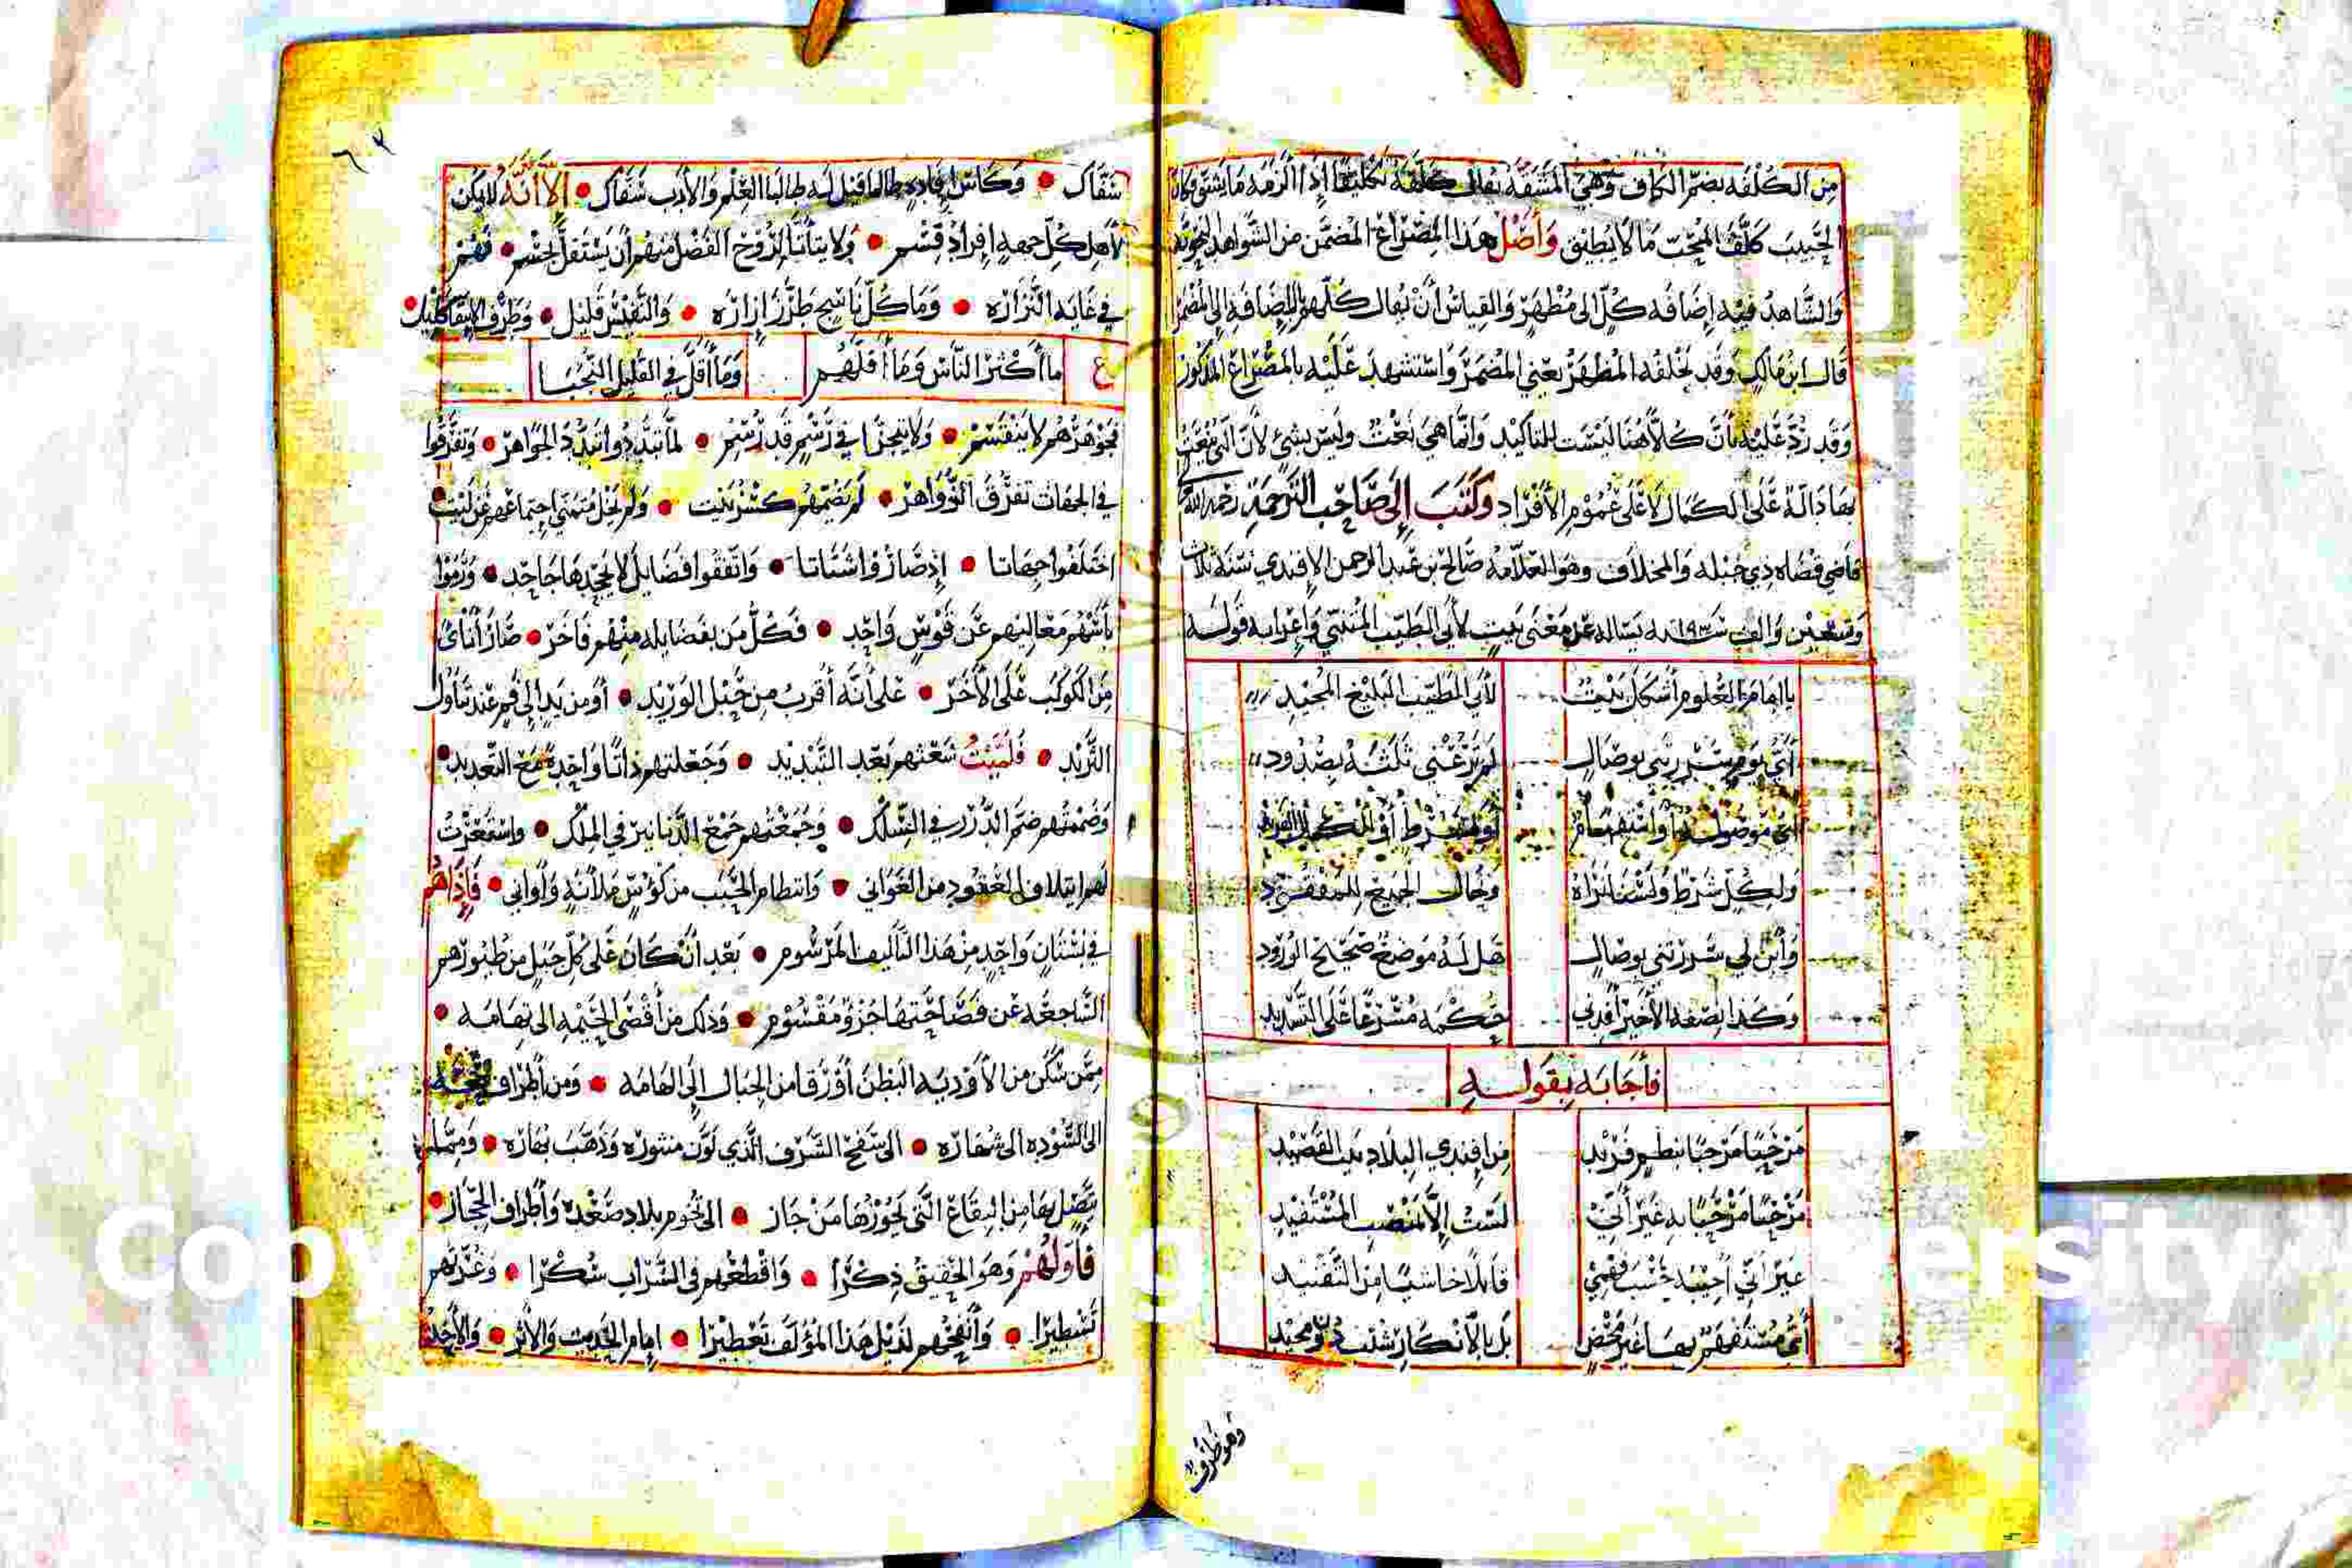 من الكلفه بضم الكاف وهي المشقة يقال كلفه تكليفا إذا ألزمه ما يشق وكان
الحبيب كلف المحب ما لا يطيق وأصل هذا المصراع المضمن من الشواهد النحويه
والشاهد فيه إضافه كل الى مظهر والقياس أن يقال كلهم بالإضافه إلى المضمر
قال ابن مالك وقد يخلفه المظهر يعني المضمر واستشهد عليه بالمصراع المذكور
وقد رد عليه بأن كلا هنا ليست للتأكيد وانما هي نعت وليس بشئ لأن التي ينعت
بها دالة على الكمال لا على عموم الأفراد وكتب إلى صاحب الترجمة رحمه الله
قاضي قضاه ذي جبله والمخلاف وهو العلامه صالح بن عبد الرحمن الافندي سنة ثلاث
وتسعين والف سنه ١٠٩٣ يساله عن معنى بيت لأبي الطيب المتنبي وإعرابه قوله
يا إمام العلوم أشكل بيت لأبي الطيب البليغ المجيد
أي يوم سررتني بوصال لم ترعني ثلثة بصدود
أي موصول أو استفهام أو لشرط أو
ولكل شرط ولسنا نراه وخال الجميع للمفقود
وأبن لي سررتني بوصال هل له موضع صحيح الورود
وكذا نصفه الأخير أفدني حكمه مسرعا على التسديد
فأجابه بقوله
مرحبا مرحبا بنظم فريد من افندي البلاد بيت القصيد
مرحبا مرحبا به غير أني لست إلا بمنصب المستفيد
غير أني أجيبه حسب فهمي قائلا خاشيا من التفنيد
أي مستفهم بها غير محض بل بالانكار شئت ذو تجيد
وهو ظرف
٦٢
شقاك • وكاس إفاده طالما قيل له طالبا العلم والأدب شقاك • إلا أنه لا يمكن
لأهل كل جهه إفراد قسم • ولا يتأتى لروح الفضل منهم أن يستقل بجسم • فهم
في غايه النزاره • وما كل ناسج طرز إزاره • والنفيس قليل • وطرف الانتقا كليل
ع ما أكثر الناس وما أقلهم وما أقل في القليل النجبا
فجوهرهم لا ينقسم • ولا يتجزا في رسم قد رسم • لما تبددوا تبدد الجواهر • وتفرقوا
في الجهات تفرق الزواهر • لم يضمهم كسر بيت • ولم يخل متمني اجتماعهم عن ليت
اختلفوا جهاتا • إذ صاروا اشتاتا • واتفقوا فضايل لا يجحدها جاحد • ورموا
بأسهم معاليهم عن قوس واحد • فكل من بفضايله منهم فاخر • صار أناى
من الكوكب على الأخر • على أنه أقرب من حبل الوريد • أو من يد إلى فم عند تناول
الثريد • فلميت شعثهم بعد التبديد • وجعلتهم ذاتا واحدة مع التعديد •
وضممتهم ضم الدرر في السلك • وجمعتهم جمع الدنانير في الملك • واستعرت
لهم ايتلاف العقود من الغواني • وانتظام الحبب من كؤس ملآنة وأواني • فإذا هم
في بستان واحد من هذا التأليف المرسوم • بعد ان كان على كل جبل من طيورهم
الساجعه عن فصاحتها جزؤ مقسوم • وذلك من أقصى الخيمه الى تهامه •
ممن سكن من الأوديه البطن أو رقا من الجبال إلى الهامه • ومن أطراف
الى السوده الى شهاره • الى سفح الشرف الذي لون منثوره وذهب بهاره • وممن
يتصل بها من البقاع التي يحوزها من جاز • الى تخوم بلاد صعده وأطراف الحجاز •
فأولهم وهو الحقيق ذكرا • واقطعهم في الشراب سكرا • وعدتهم
تسطيرا • وأنفحهم لذيل هذا المؤلف تعطيرا • إمام الحديث والأثر •